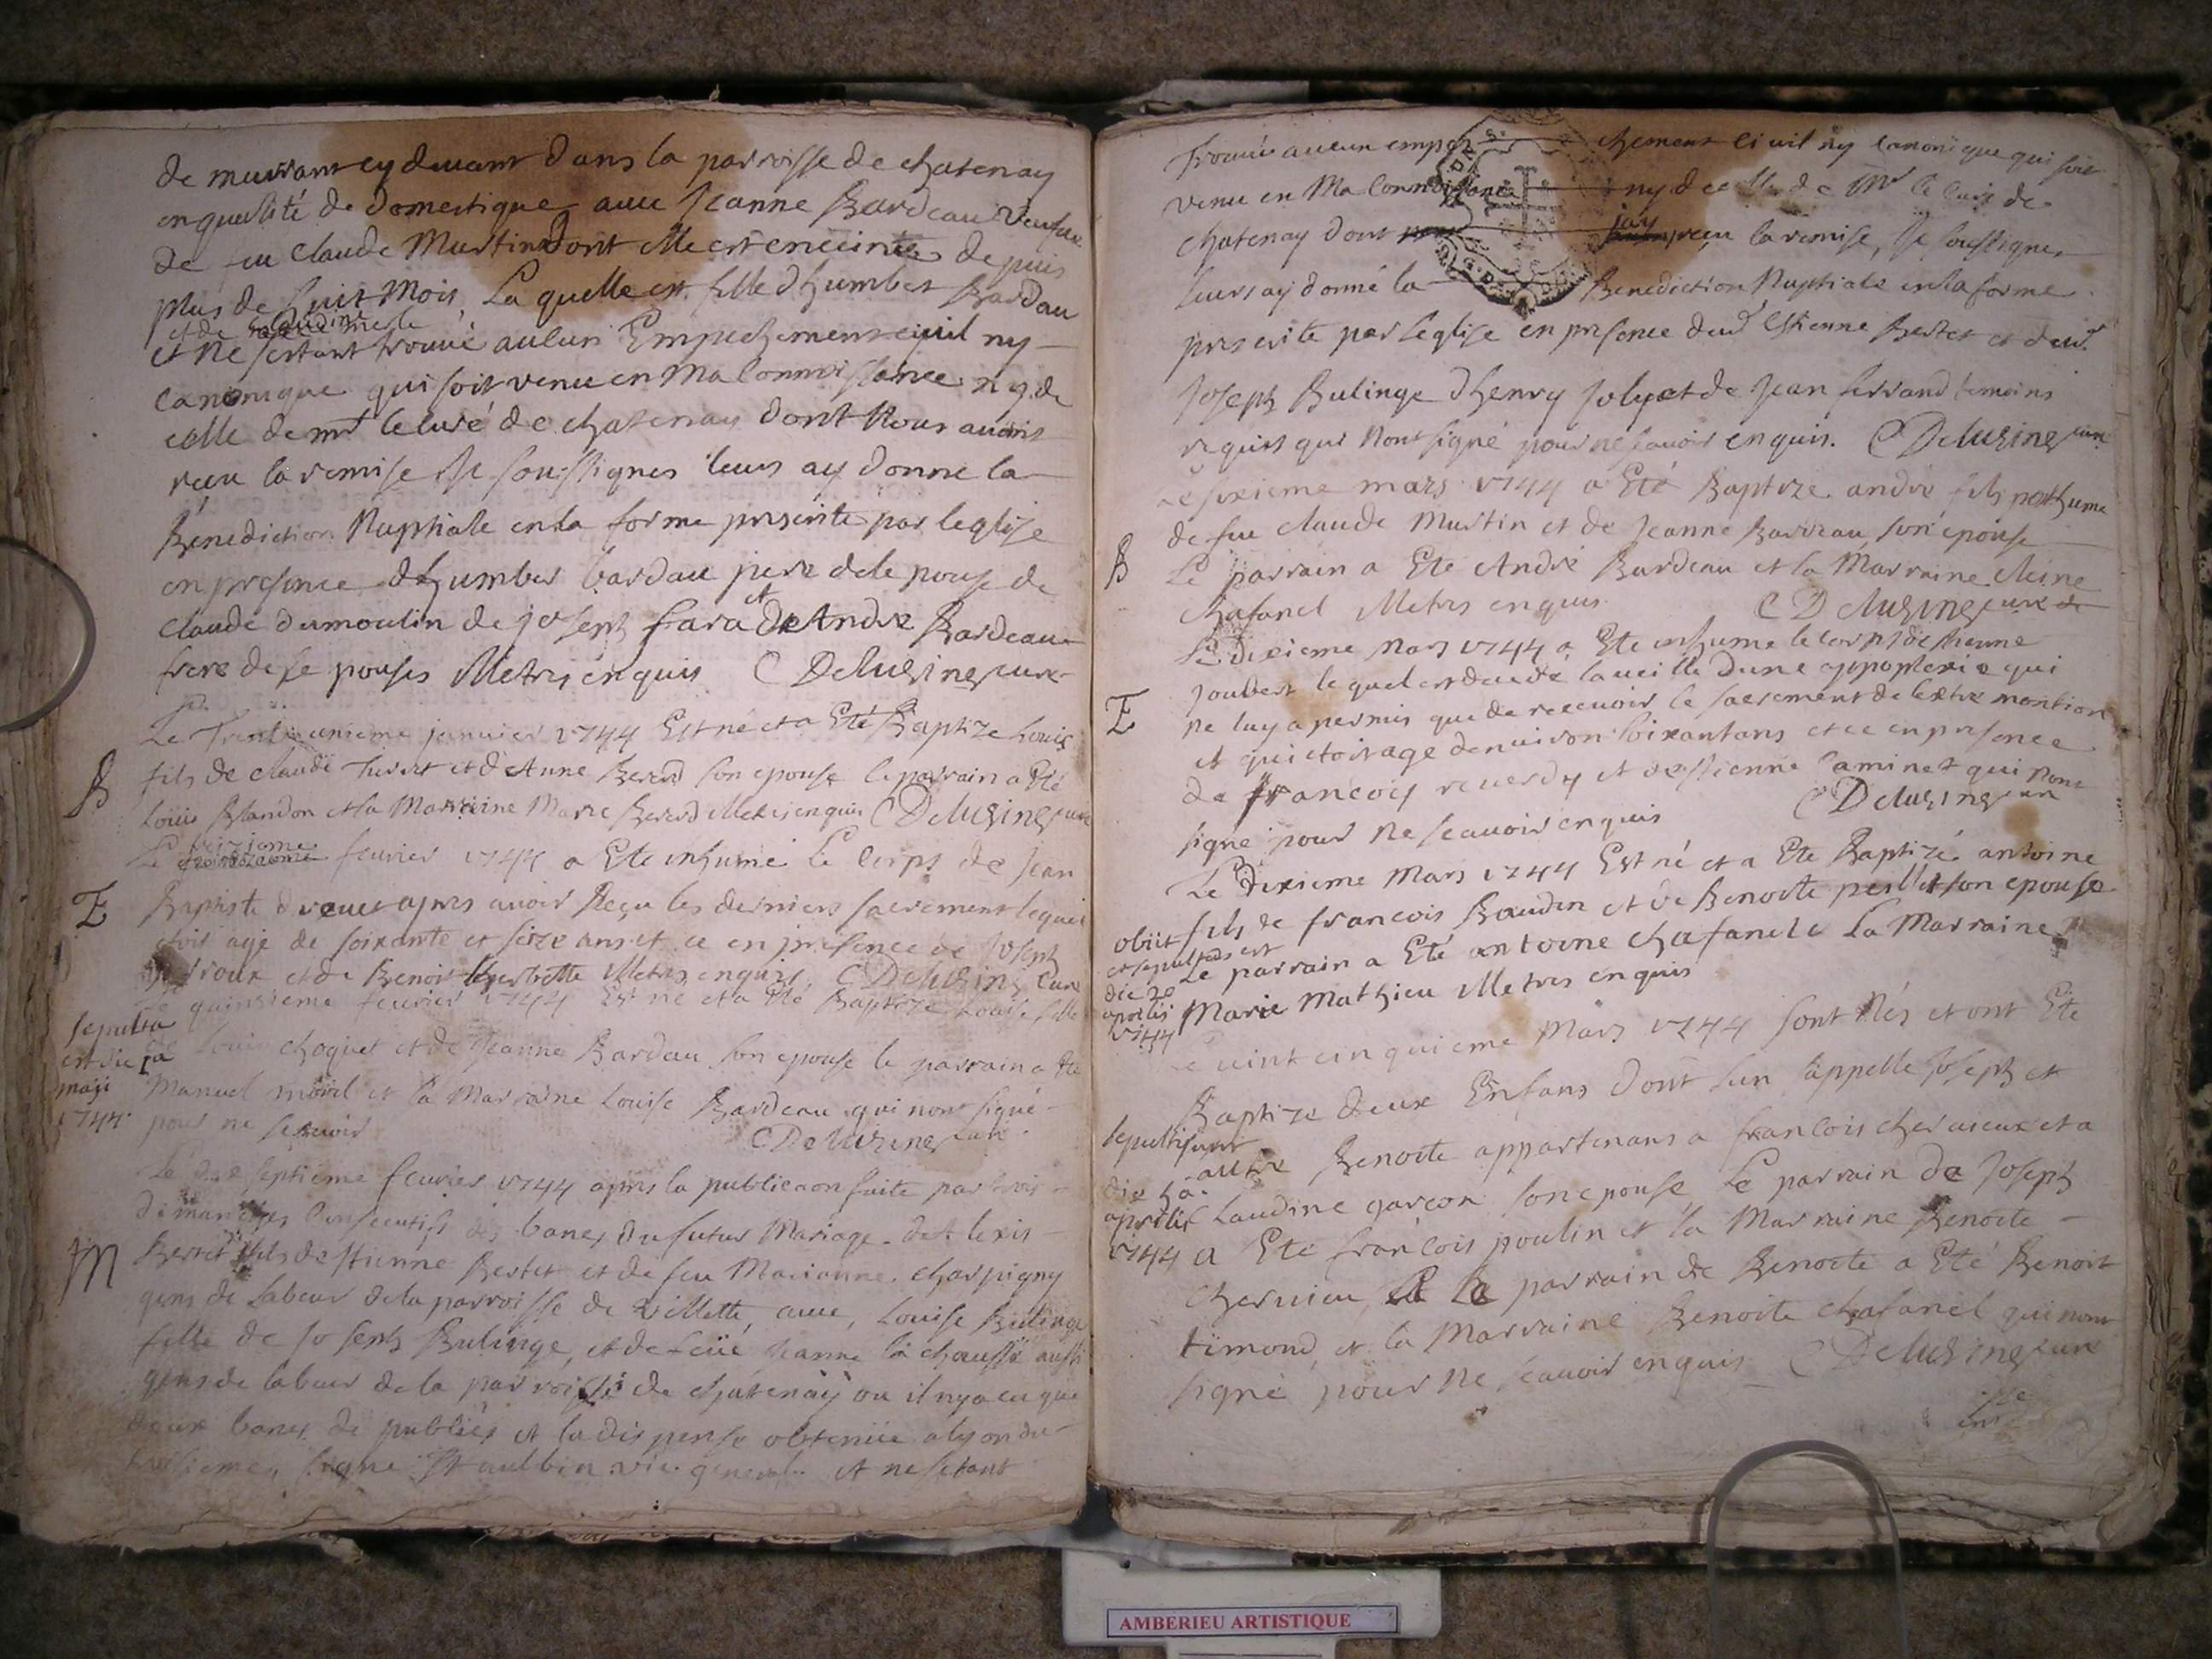 de meurant cy devant dans la parroisse de chatenay
en qualité de domestique avec Jeanne Bardeau veufue
de feu claude Martin dont elle est enceinte depuis
plus de huit Mois, La quelle est fille dhumbert Bardau
et de claudine merle
et ne sestant trouvé aucun Empechement civil ny
canonique qui soit venu en Ma connoissance ny de
celle de mr le curé de chatenay dont Nous avons
receu la remise Je soussignes leurs ay donne la
Benediction Nuptiale en la forme prescrite par leglise
en presence dhumber bardau pere dele pouse de
claude dumoulin de joseph fara et de Andre Bardeau
frere dele pouses illetres enquis Delusines curé
Le Trentieunieme janvier 1744 Est né et a Eté Baptize Louis
B
fils de claude et d'Anne Bererd son epouse le parrain a Eté
Louis Blandon et la Marraine Marie Bererd illetres enquis Delusines curé
Le feurier 1744 a Ete inhumé Le Corps de Jean
E
Baptiste apres avoir Reçu les derniers sacrement lequel
etoit agé de soixante et seize ans et ce en presence de Joseph
et de Benoit illetres enquis Delusines Curé
Le quinsieme feurier 1744 Est né et a Eté Baptize Louise fille
sepulta
est die 1a
maji
1744
de Louis choquet et de Jeanne Bardeau son epouse le parrain a Ete
Manuel morel et la Marraine Louise Bardeau qui nont signé
pour ne scavoir Delusines curé
Le dix septieme feurier 1744 apres la publicaon faite par trois
dimanches Consecutifs des bancs du futur Mariage d'Alexis
M
Bertet fils destienne Bertet et de feu Marianne charpigny
gens de labeur de la parroisse de Villette, avec, Louise Bulinge
fille de Joseph Bulinge, et de feüe Jeanne la chausse aussi
gens de labeur de la parroisse de chatenay ou il ny a eu que
deux bancs de publiés et la dispense obtenüe a lyon du
troisieme, signe St aulbin vic. general. et ne setant
Trouvé aucun empechement civil ny canonique qui soit
venu en Ma connoissance ny de celle de Mr le curé de
chatenay dont jay receu la remise, Je soussignes
leurs ay donné la Benediction Nuptiale en la forme
prescrite par leglise en presence dud Estienne Bertet et dud.
Joseph Bulinge dhenry Joly et de Jean ferrand temoins
requis qui Nont signé pour ne scavoir enquis. Delusines curé
Le sixieme mars 1744 a Eté Baptize andré fils posthume
de feu claude Martin et de Jeanne Bardeau son epouse
B
Le parrain a Ete André Bardeau et la Marraine cleine
chafanel illetres enquis Delusines curé
Le dixieme Mars 1744 a Ete inhume le corps destienne
E
Joubert le quel est decedé la veille dune appoplexie qui
ne luy a permis que de recevoir le sacrement de lextre montion
et qui etoit agé denviron soixant ans et ce en presence
de francois reverdy et destienne caminet qui nont
signé pour ne scavoir enquis Delusines curé
Le dixieme Mars 1744 Est né et a Ete Baptizé antoine
obiit
et sepultus est
die 20
aprilis
1744
fils de francois Baudin et de Benoite peillet son epouse
Le parrain a Eté antoine chafanel et La Marraine
Marie Mathieu illetres enquis
Le vint cinquieme Mars 1744 sont Nés et ont Ete
Baptize deux Enfans dont lun sappelle Joseph et
sepulti sunt
die
aprilis
1744
lautre Benoite appartenans a francois chervieux et a
claudine garçon son epouse Le parrain de Joseph
a Eté françois poulin et la Marraine Benoite
chervieu, Le parrain de Benoite a Eté Benoit
timond, et la Marraine Benoite chafanel qui nont
signé pour ne scavoir enquis Delusines curé
AMBERIEU ARTISTIQUE